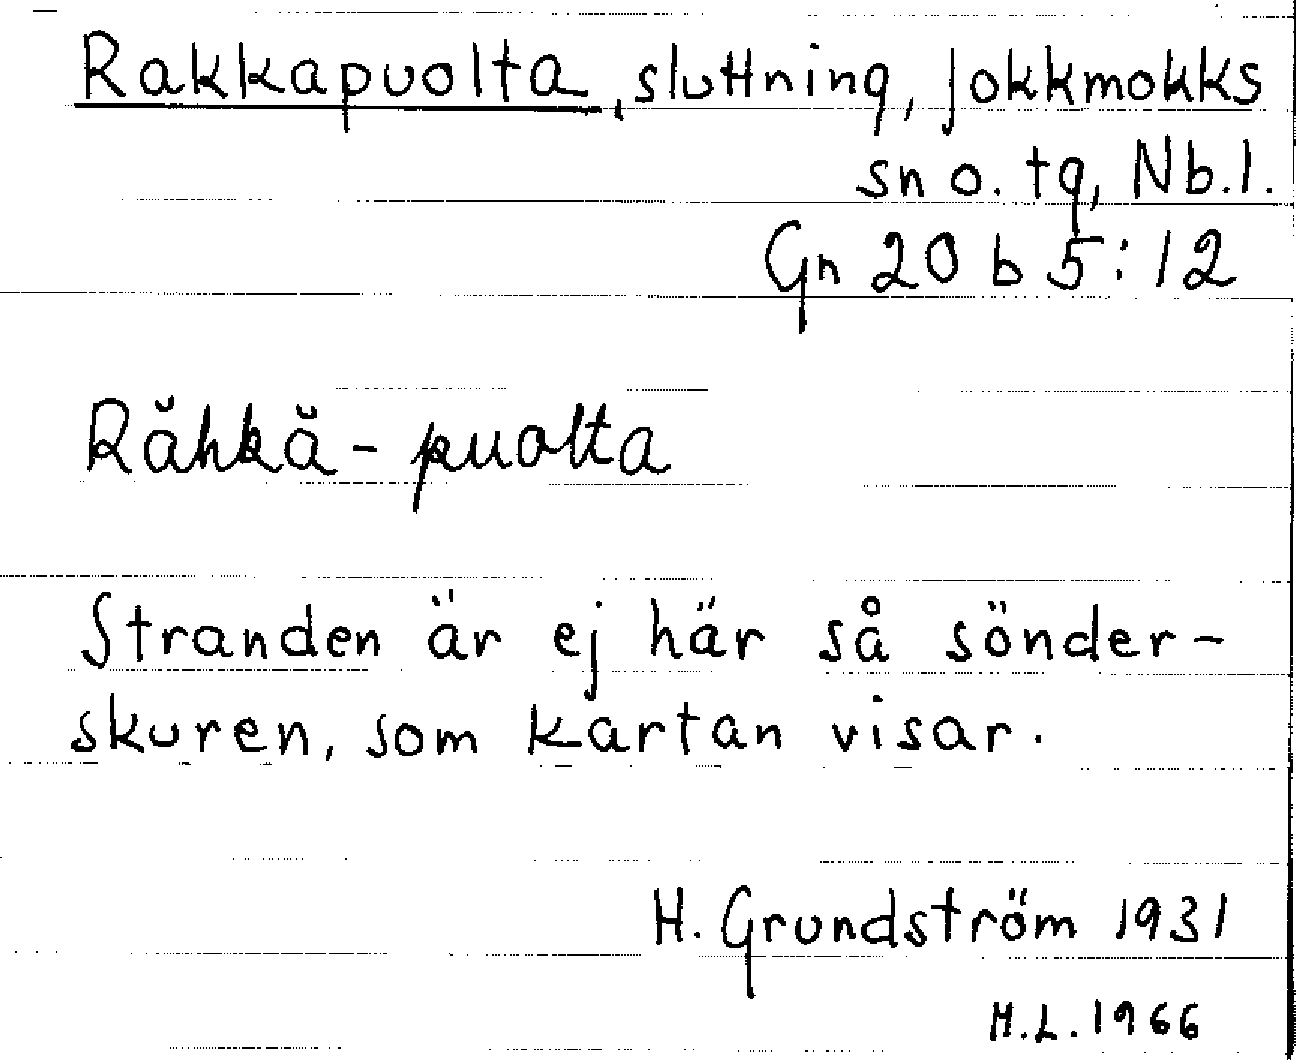 Rakkapuolta, sluttning, Jokkmokks
sn o. tg, Nb.l.
Gn 20 b 5:12
Răhkă-puolta
Stranden är ej här så sönder-
skuren, som kartan visar.
H. Grundström 1931
H.L. 1966